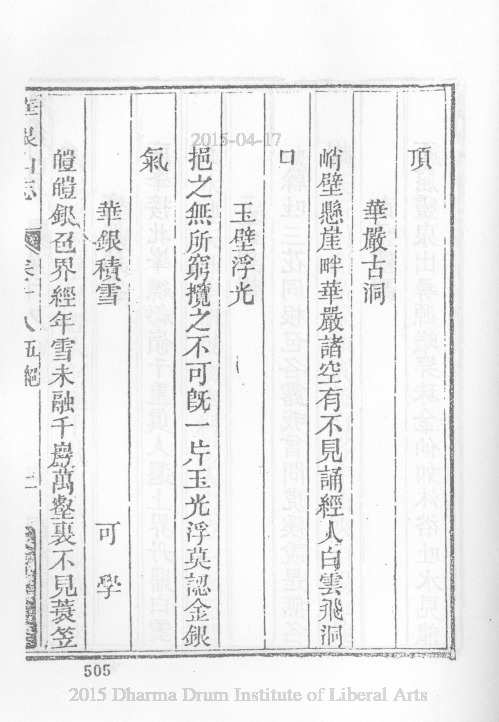 頂
華嚴古洞
峭壁懸崖畔華嚴諸空有不見誦經人白雲飛洞
口
玉壁浮光
挹之無所窮攬之不可旣一片玉光浮莫認金銀
氣
華銀積雪 可學
皚皚銀色界經年雪未融千巖萬壑裏不見蓑笠
華銀山志 卷十八 五絕
505
2015-04-17
2015 Dharma Drum Institute of Liberal Arts